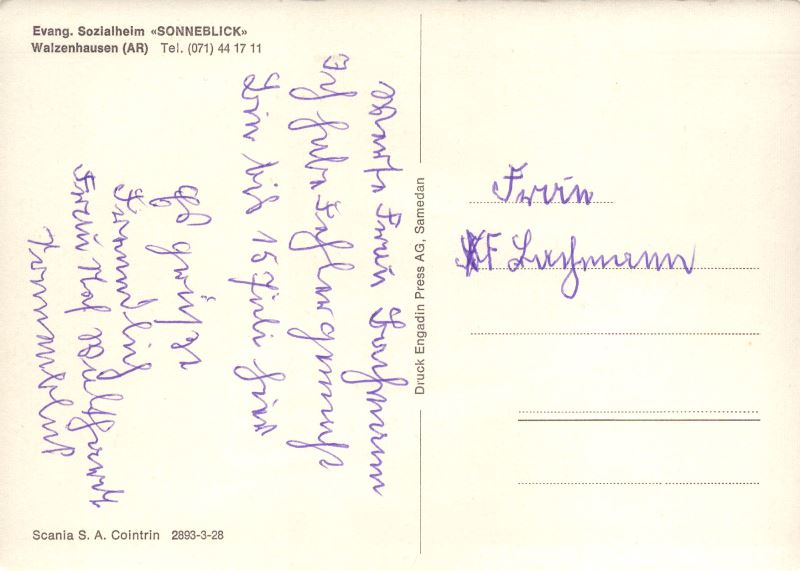 Evang. Sozialheim «SONNEBLICK»
Walzenhausen (AR) Tel. (071) 44 17 11
Frau Lachmann
Ich habe
bin bis 15 Juli hier
Es grüßt
Freundlich
Frau
Druck Engadin Press AG, Samedan
Frau
F Lachmann
Scania S. A. Cointrin 2893-3-28